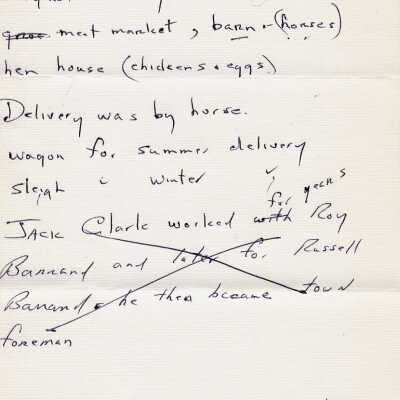 meat market, barn - (horses)
hen house (chickens & eggs)
Delivery was by horse.
wagon for summer delivery
sleigh i winter
for years
JACK Clark worked with Roy
Barrand and later for Russell
Barrand & he then became town
foreman